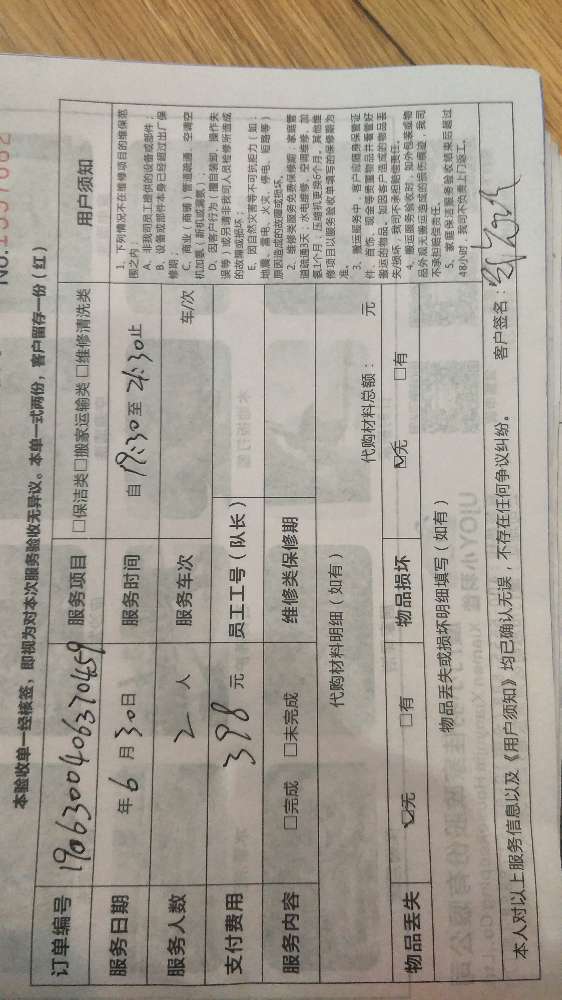 No.1557662
本验收单一经核签，即视为对本次服务验收无异议。本单一式两份，客户留存一份（红）
订单编号 1906300406370459 服务项目 □保洁类□搬家运输类 □维修清洗类 用户须知
服务日期 年 6 月 30 日 服务时间 自 19:30 至 21:30 止
服务人数 2 人 服务车次 车/次
支付费用 398 元 员工工号（队长）
服务内容 □完成 □未完成 维修类保修期
代购材料明细（如有） 代购材料总额： 元
物品丢失 ☑无 □有 物品损坏 ☑无 □有
物品丢失或损坏明细填写（如有）
1、下列情况不在维修项目的维保范
围之内：
A、非我司员工提供的设备或部件；
B、设备或部件本身已经超过出厂保
修期；
C、商业（商铺）管道疏通、空调空
机加氟（新机或漏氟）；
D、因客户行为（擅自装卸、操作失
误等）或另请非我司人员检修所造成
的故障或损坏；
E、因自然灾害等不可抗距力（如：
地震、雷电、水灾、停电、短路等）
原因造成的故障或损坏。
2、维修类服务免费保修期：家庭管
道疏通3天；水电维修、空调维修、加
氟1个月；压缩机更换6个月。其他维
修项目以服务验收单填写的保修期为
准。
3、搬运服务中，客户应随身保管证
件、首饰、现金等贵重物品并看管好
搬运的物品，如因客户造成的物品丢
失/损坏，我司不承担赔偿责任。
4、搬运服务验收时，如外包装或物
品外观无搬运造成的损伤痕迹，我司
不承担赔偿责任。
5、家庭保洁服务验收结束后超过
48小时，我司不负责上门返工。
本人对以上服务信息以及《用户须知》均已确认无误，不存在任何争议纠纷。 客户签名：